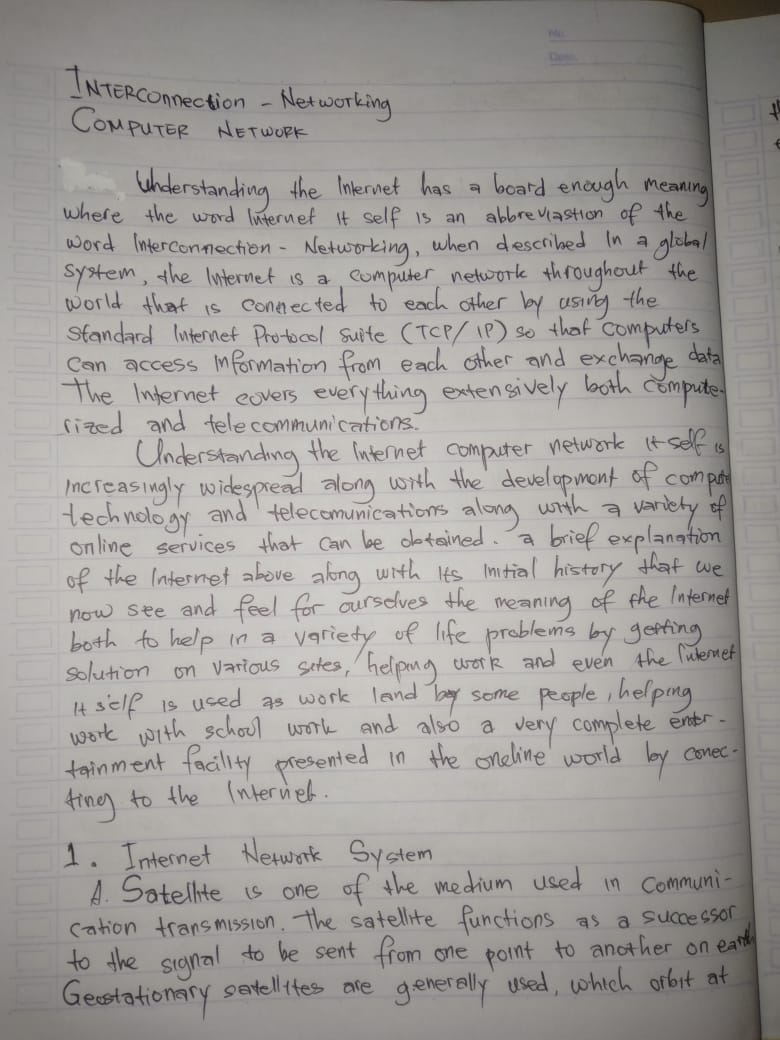 No.
Date.
INTERConnection - Networking
COMPUTER NETWORK
Understanding the Internet has a board enough meaning
where the word Internet it self is an abbreviastion of the
word Interconnection - Networking, when described in a global
system, the Internet is a computer network throughout the
world that is connected to each other by using the
Standard Internet Protocol Suite (TCP/IP) so that computers
can access information from each other and exchange data
The Internet covers everything extensively both compute-
rized and telecommunications.
Understanding the Internet computer network it self is
increasingly widespread along with the development of compute
technology and telecomunications along with a variety of
online services that can be obtained. a brief explanation
of the Internet above along with its initial history that we
now see and feel for ourselves the meaning of the Internet
both to help in a variety of life problems by getting
solution on various sites, helping work and even the Internet
it self is used as work land by some people, helping
work with school work and also a very complete enter-
tainment facility presented in the oneline world by conec-
ting to the Internet.
1. Internet Network System
A. Satellite is one of the medium used in communi-
cation transmission. The satellite functions as a successor
to the signal to be sent from one point to another on earth
Geostationary satellites are generally used, which orbit at